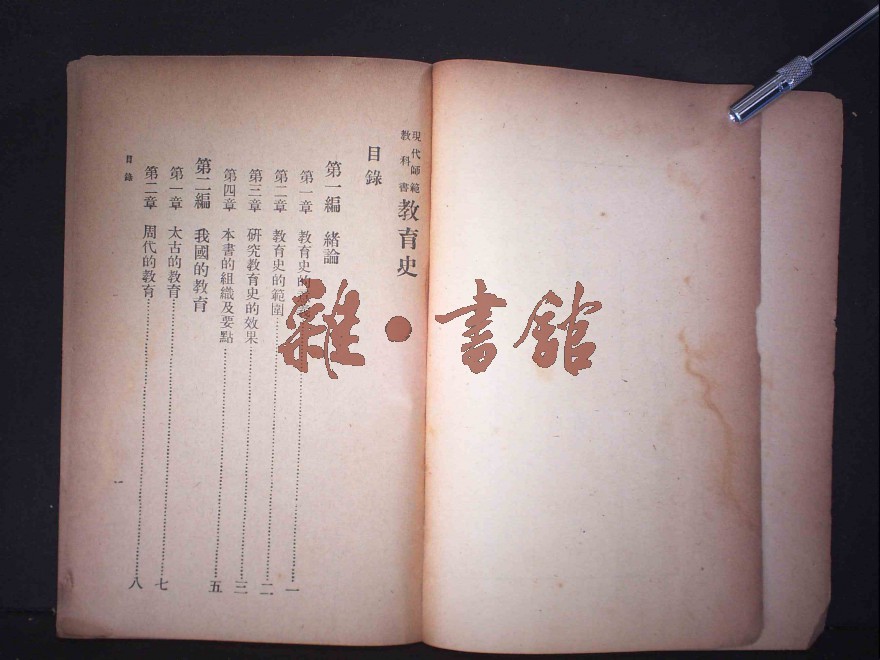 現代師範教科書 教育史
目錄
第一編 緒論
第一章 教育史的……一
第二章 教育史的範圍……二
第三章 研究教育史的效果……三
第四章 本書的組織及要點……五
第二編 我國的教育
第一章 太古的教育……七
第二章 周代的教育……八
目錄
一
雜・書館